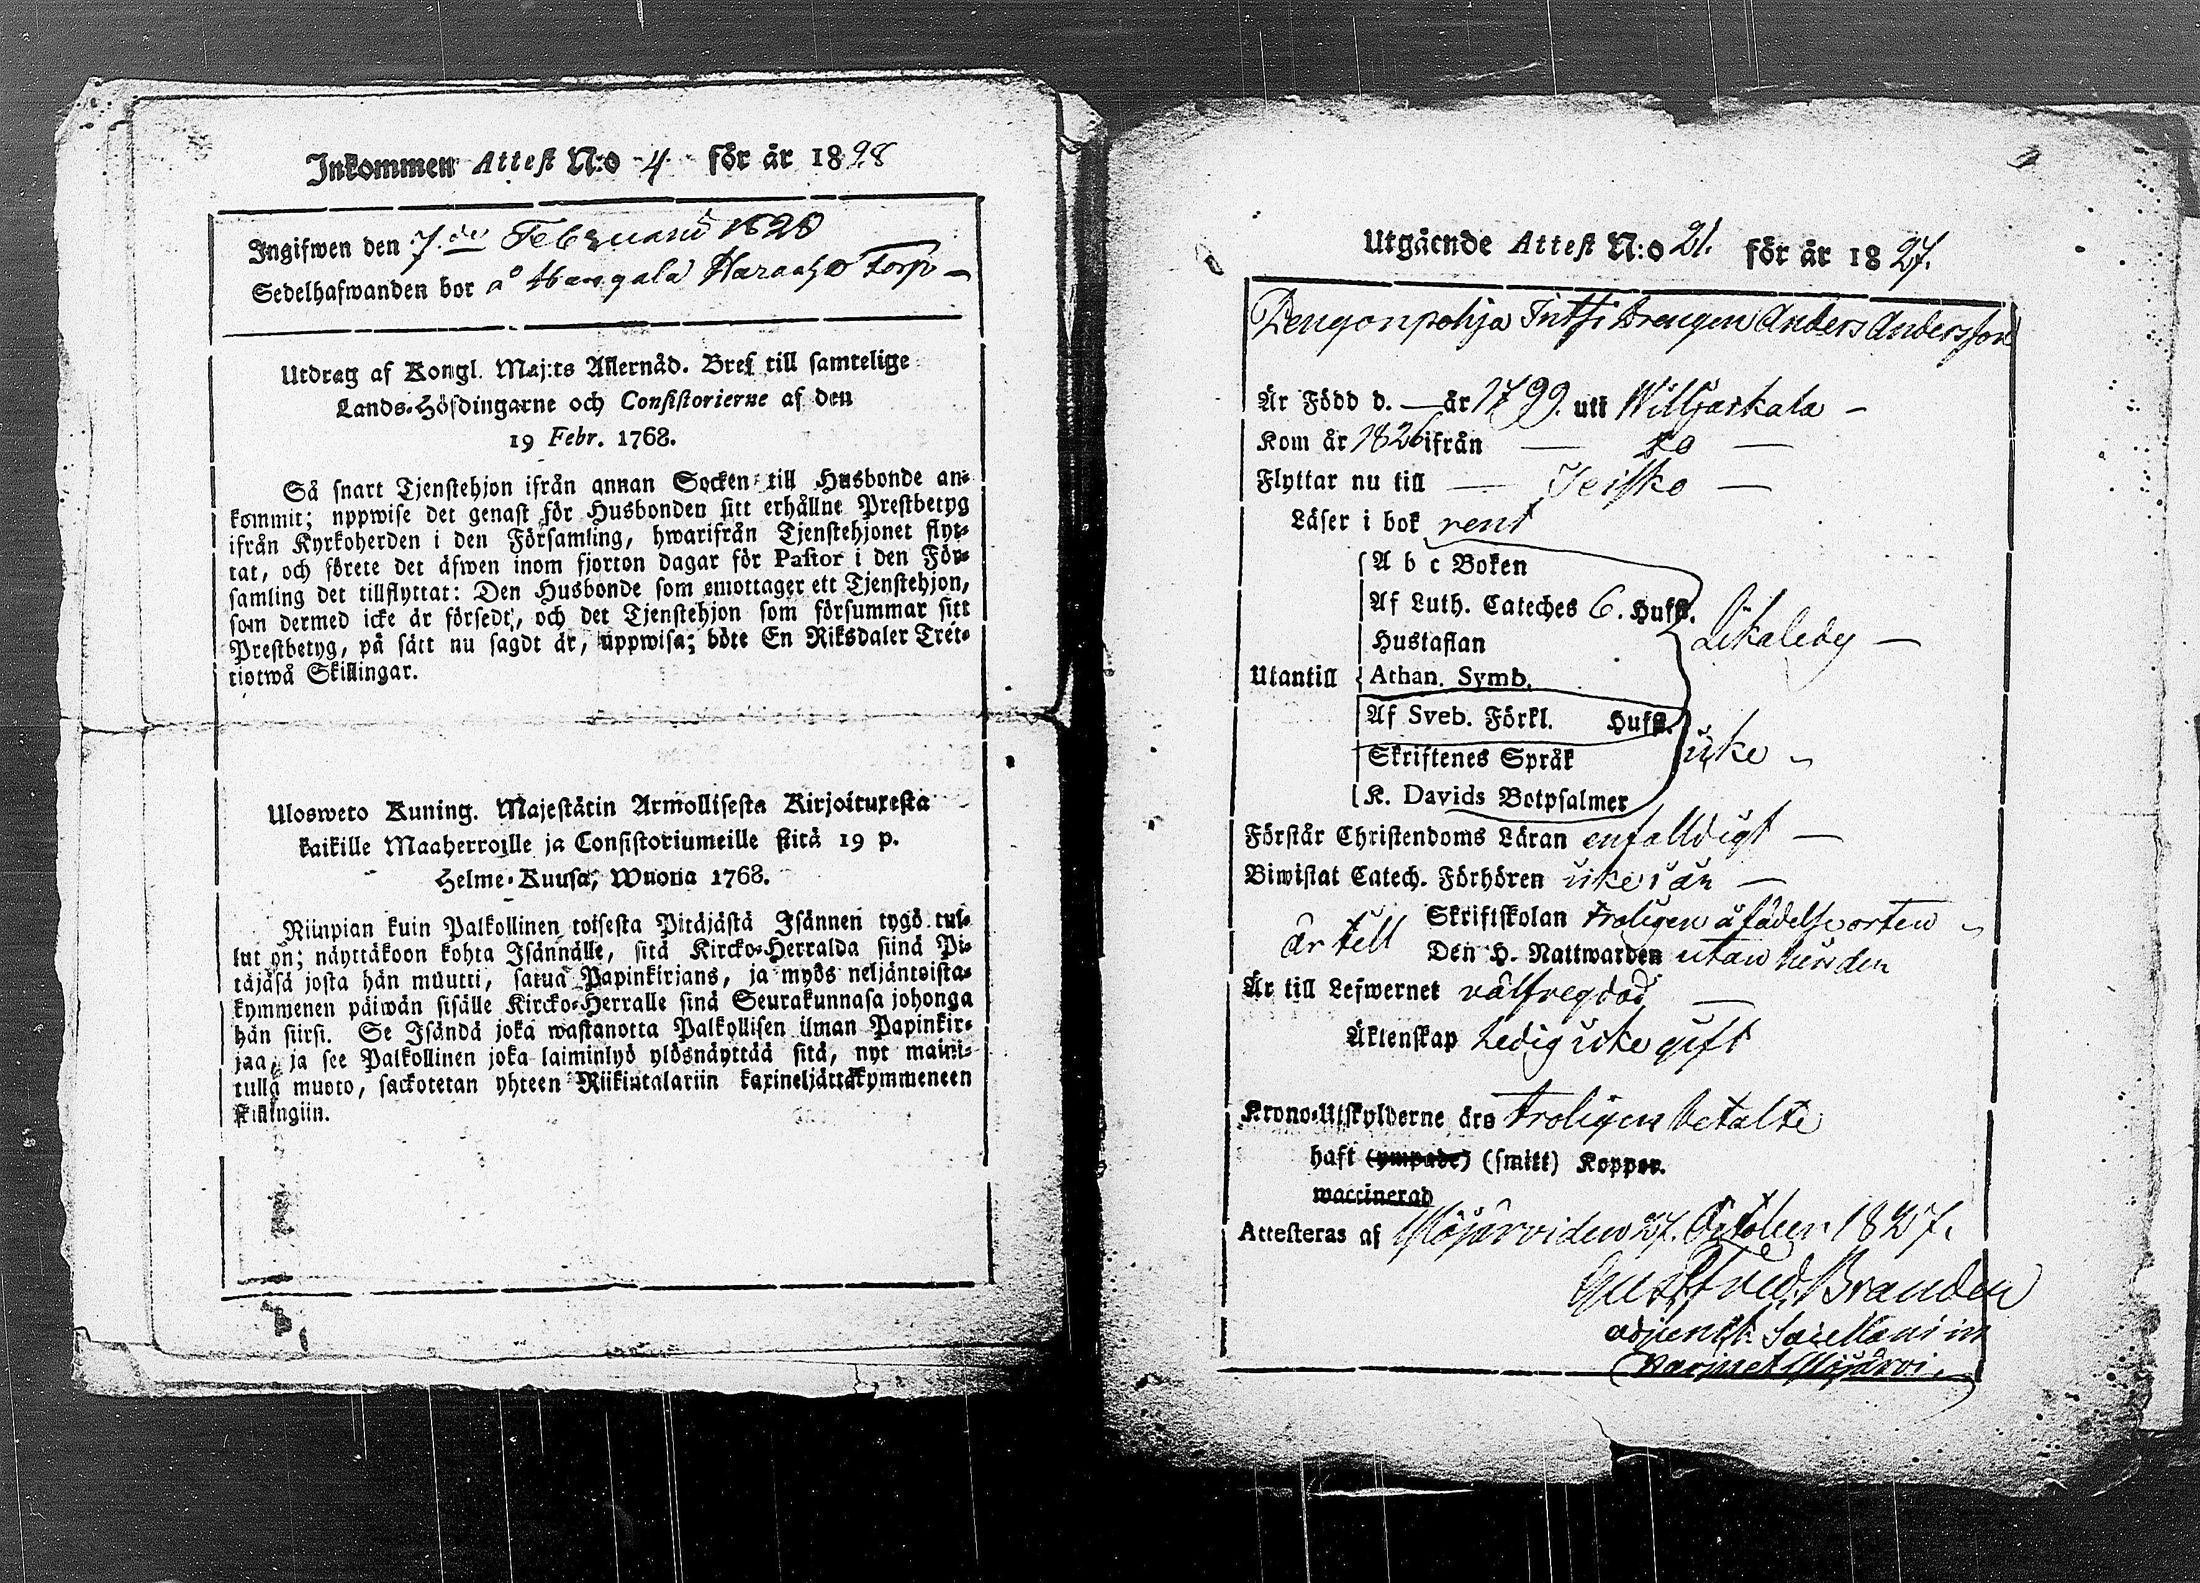 Inkommen Attest N:o 4. för år 1828
Ingifwen den 7.de Februarii 1828
Sedelhafwanden bor å Torp
Utdrag af Kongl. Maj:ts Allernåd. Bref till samtelige
Lands-Höfdingarne och Consistorierne af den
19 Febr. 1768.
Så snart Tjenstehjon ifrån annan Socken till Husbonde an-
kommit; uppwise det genast för Husbonden sitt erhållne Prestbetyg
ifrån Kyrkoherden i den Församling, hwarifrån Tjenstehjonet flyt-
tat, och förete det äfwen inom fjorton dagar för Pastor i den För-
samling det tillflyttat: Den Husbonde som emottager ett Tjenstehjon,
som dermed icke är försedt, och det Tjenstehjon som försummar sitt
Prestbetyg, på sätt nu sagdt är, uppwisa; böte En Riksdaler Tret-
tiotwå Skillingar.
Ulosweto Kuning. Majestätin Armollisesta Kirjoituxesta
kaikille Maaherroille ja Consistoriumeille siitä 19 p.
Helme-Kuusa, Wuona 1768.
Niinpian kuin Palkollinen toisesta Pitäjästä Isännen tygö tul-
lut on; näyttäkoon kohta Isännälle, sitä Kircko-Herralda siinä Pi-
täjäsä josta hän muutti, satua Papinkirjans, ja myös neljäntoista-
kymmenen päiwän sisälle Kircko-Herralle sinä Seurakunnasa johonga
hän siirsi. Se Isändä joka wastanotta Palkollisen ilman Papinkir-
jaa, ja see Palkollinen joka laiminlyö ylösnäyttää sitä, nyt maini-
tulla muoto, sackotetan yhteen Riikintalariin kaxineljättäkymmeneen
killingiin.
Utgående Attest N:o 21. för år 1827.
Drengen Anders Andersson
Är Född d. — år 1799. uti Williaskala —
Kom år 1826 ifrån — do —
Flyttar nu till — Jeisko —
Läser i bok rent
A b c Boken
Af Luth. Cateches 6. Hufst.
Hustaflan Likaledes —
Utantill Athan. Symb.
Af Sveb. Förkl. Hufst.
Skriftenes Språk icke
K. Davids Botpsalmer
Förstår Christendoms Läran enfalldigt —
Biwistat Catech. Förhören icke i år —
Skriftskolan troligen å födelseorten
är till Den H. Nattwarden utan hinder
Är till Lefwernet välfregdad —
Äktenskap Ledig icke gift
Krono-Utskylderne äro troligen betalte
haft (ympade) (smitt) Koppor.
waccinerad
Attesteras af den 27. October 1827.
Gust. Fred. Branden
adjunct. Sacellani in